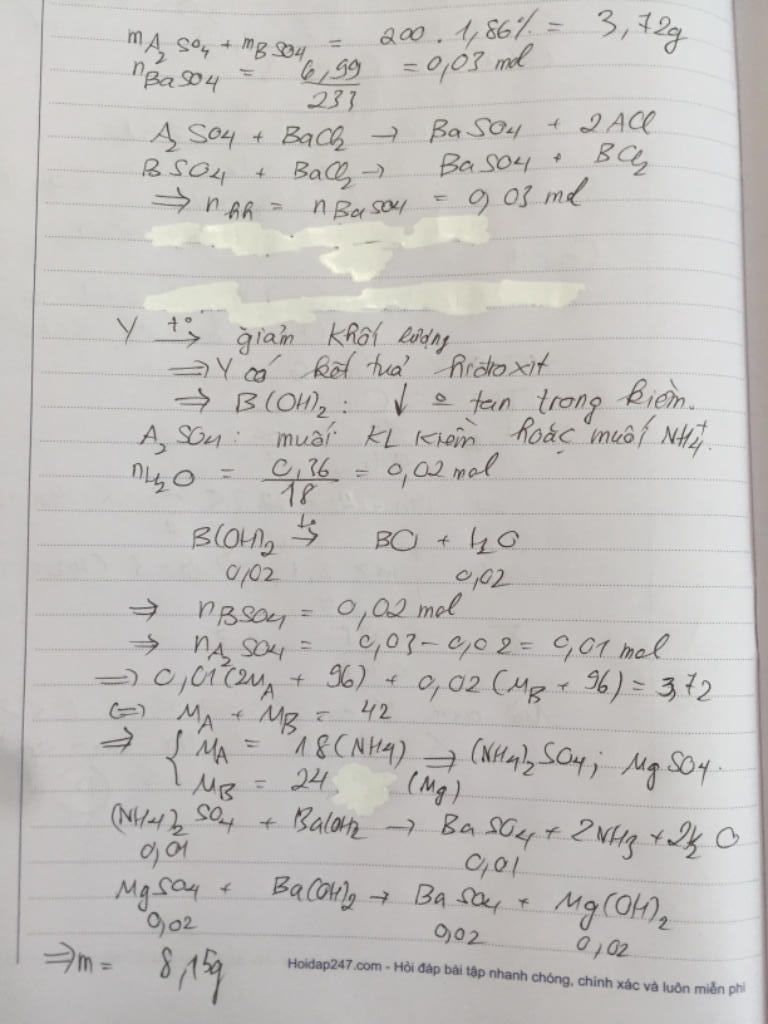 mA2SO4 + mBSO4 = 200 . 1,86% = 3,72g
nBaSO4 = 6,99/233 = 0,03 mol
A2SO4 + BaCl2 → BaSO4 + 2ACl
BSO4 + BaCl2 → BaSO4 + BCl2
⇒ nhh = nBaSO4 = 0,03 mol
Y t°→ giảm khối lượng
⇒ Y có kết tủa hidroxit
⇒ B(OH)2 : ↓ o tan trong kiềm.
A2SO4 : muối KL kiềm hoặc muối NH4+.
nH2O = 0,36/18 = 0,02 mol
B(OH)2 t°→ BO + H2O
0,02 0,02
⇒ nBSO4 = 0,02 mol
⇒ nA2SO4 = 0,03 - 0,02 = 0,01 mol
⇒ 0,01(2MA + 96) + 0,02(MB + 96) = 3,72
(=) MA + MB = 42
⇒ { MA = 18(NH4) ⇒ (NH4)2SO4; MgSO4.
MB = 24 (Mg)
(NH4)2SO4 + Ba(OH)2 → BaSO4 + 2NH3 + 2H2O
0,01 0,01
MgSO4 + Ba(OH)2 → BaSO4 + Mg(OH)2
0,02 0,02 0,02
⇒ m = 8,15g
Hoidap247.com - Hỏi đáp bài tập nhanh chóng, chính xác và luôn miễn phí